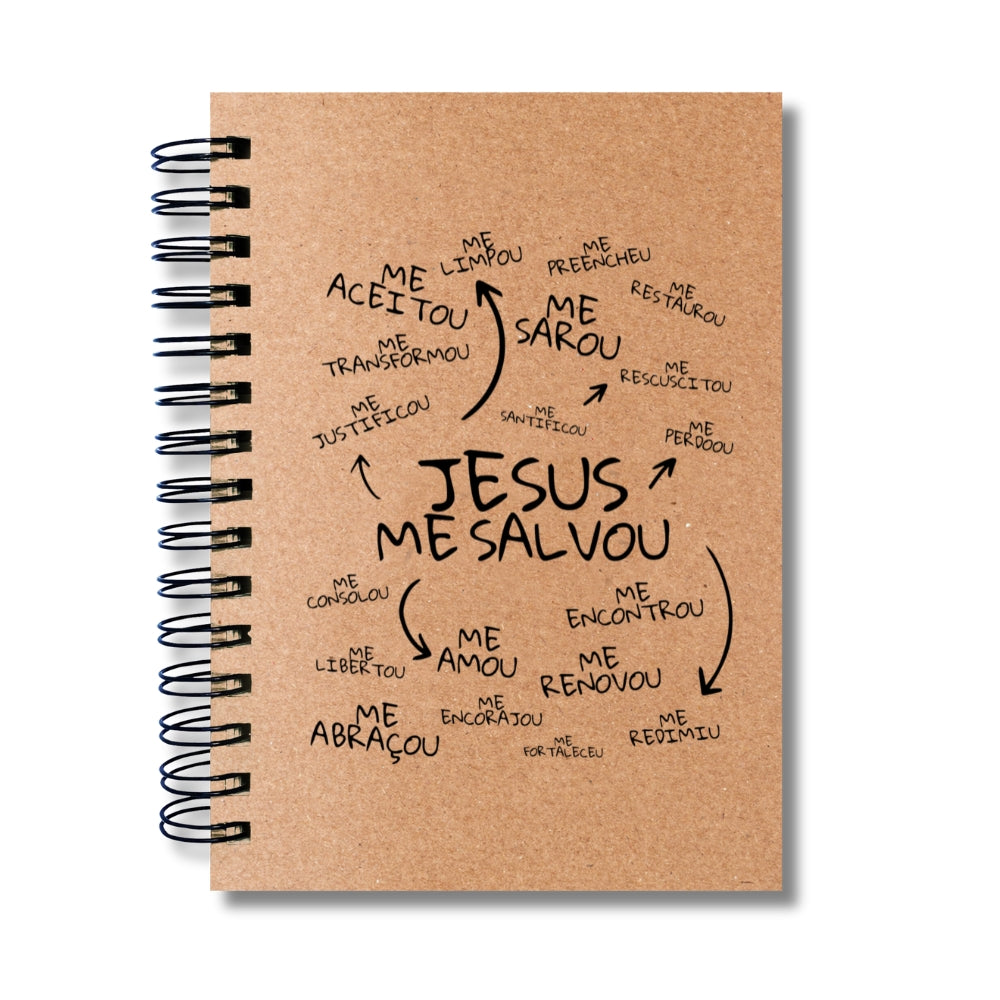 ME
LIMPOU
ME
PREENCHEU
ME
ACEITOU
ME
RESTAUROU
ME
SAROU
ME
TRANSFORMOU
ME
RESCUSCITOU
ME
JUSTIFICOU
ME
SANTIFICOU
ME
PERDOOU
JESUS
ME SALVOU
ME
CONSOLOU
ME
ENCONTROU
ME
LIBERTOU
ME
AMOU
ME
RENOVOU
ME
ABRAÇOU
ME
ENCORAJOU
ME
REDIMIU
ME
FORTALECEU